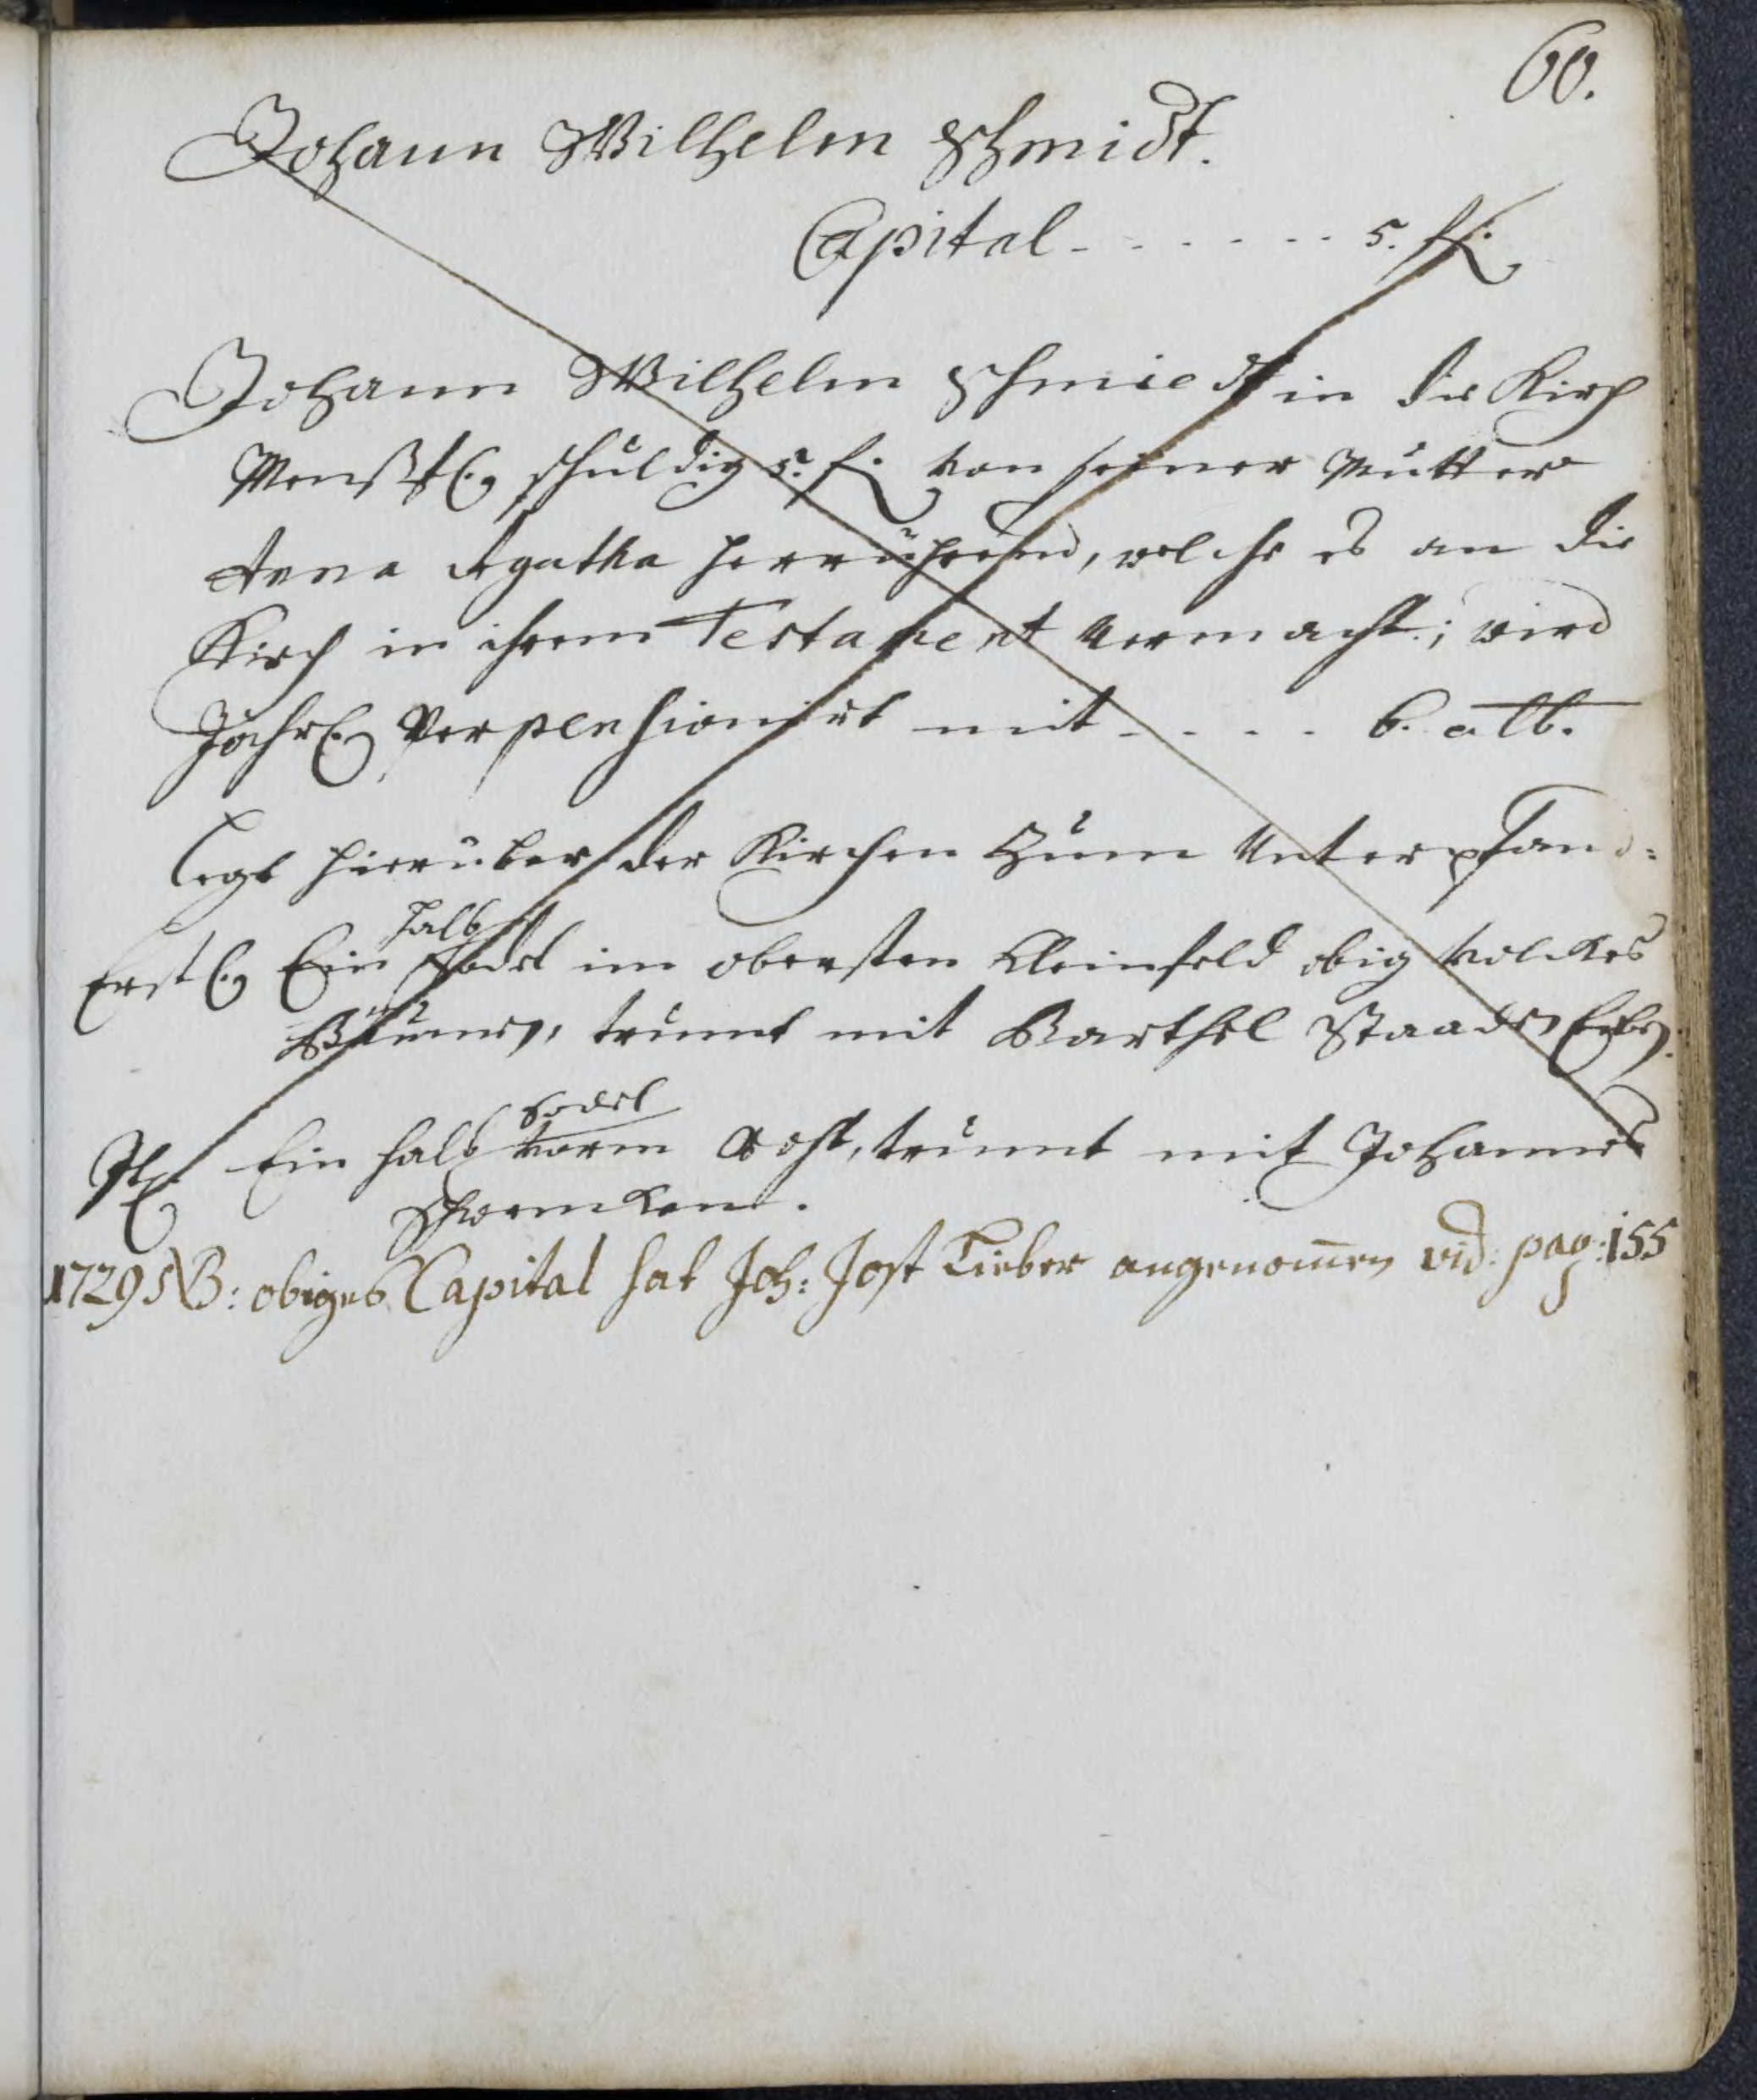 60.
Johann Wilhelm Schmidt.
Capital - - - - - - - 5. fl.
Johann Wilhelm Schmiedt in die Kirch
schuldig 5. fl. von seiner Mutter
Anna Agatha herrührend, welche es an die
Kirch in ihrem Testament vermacht; wird
Jährl. verpensionirt mit - - - - 6. alb.
legt hierüber der Kirchen zum Unterpfand:
halb
Erstl. Ein sodel im obersten Kleinfeld obig Volckes
trümt mit Barthel Staaden Erben.
sodel
It. Ein halb vorm trümt mit Johannes
1729 NB: obiges Capital hat Joh: Jost Lieber angenom̄en vid: pag: 155